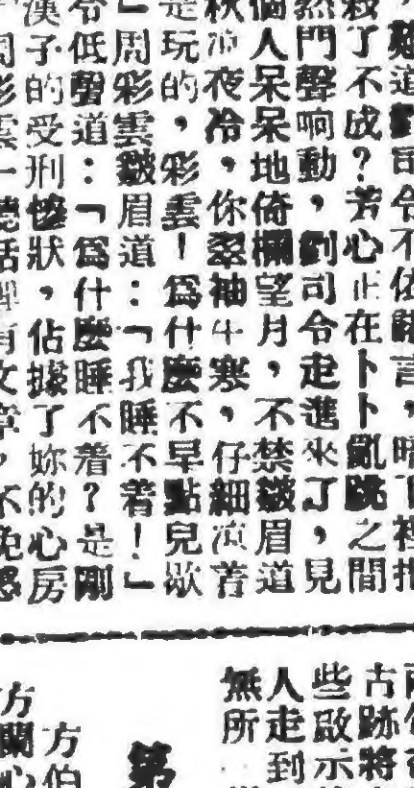 殺，難道劉司令不依諾言，暗下裡
了不成？芳心正在卜卜亂跳之間
然門聲响動，劉司令走進來了，見
個人呆呆地倚欄望月，不禁皺眉道
秋涼夜冷，你翠袖生寒，仔細涼着
是玩的，彩雲！爲什麼不早點兒歇
」周彩雲皺眉道：「我睡不着！」
令低聲道：「爲什麼睡不着？是剛
漢子的受刑慘狀，佔據了妳的心房
周彩雲一聽話裡有文章，不免
古跡將
些啟示
人走到
無所
第
方伯
方蘭心